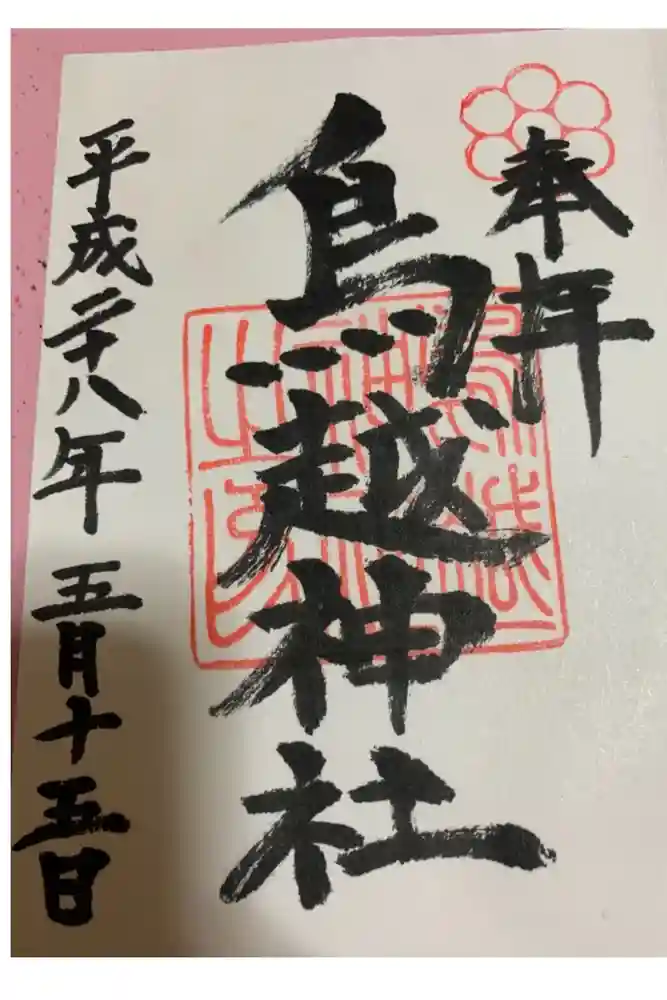 奉拝
鳥越神社
平成二十八年 五月十五日